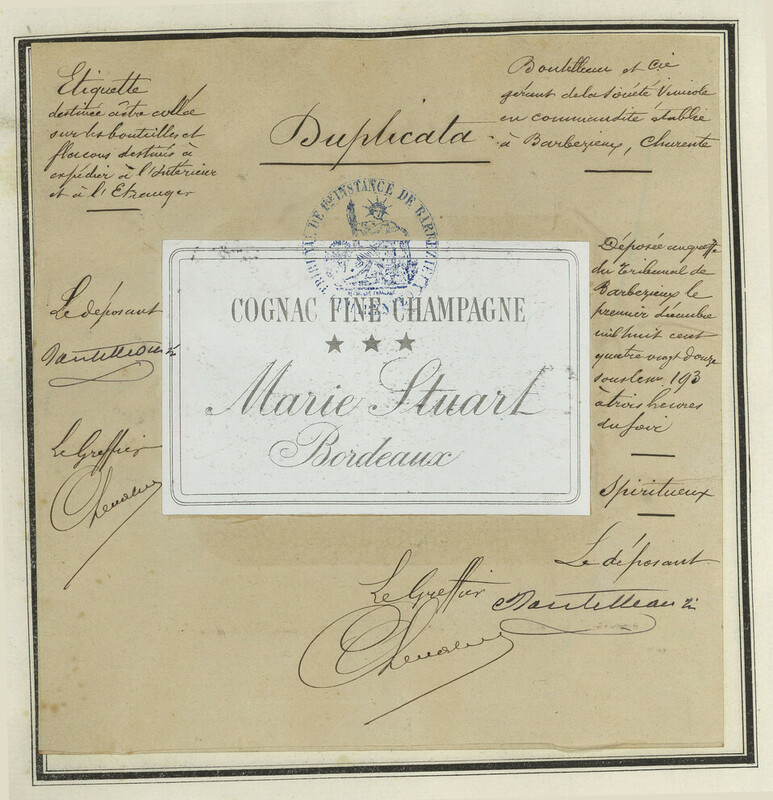 Etiquette
destinée à être collée
sur les bouteilles et
flacons destinés à
expédier à l'Intérieur
et à l'Etranger
Duplicata
Boutelleau et Cie
gérant de la Société Vinicole
en commandite établie
à Barbezieux, Charente
TRIBUNAL DE 1re INSTANCE DE BARBEZIEUX
COGNAC FINE CHAMPAGNE
Marie Stuart
Bordeaux
Le déposant
Boutelleau
Le Greffier
Déposée au greffe
du Tribunal de
Barbezieux le
premier décembre
mil huit cent
quatre vingt douze
sous le no 193
à trois heures
du soir
Spiritueux
Le déposant
Boutelleau
Le Greffier